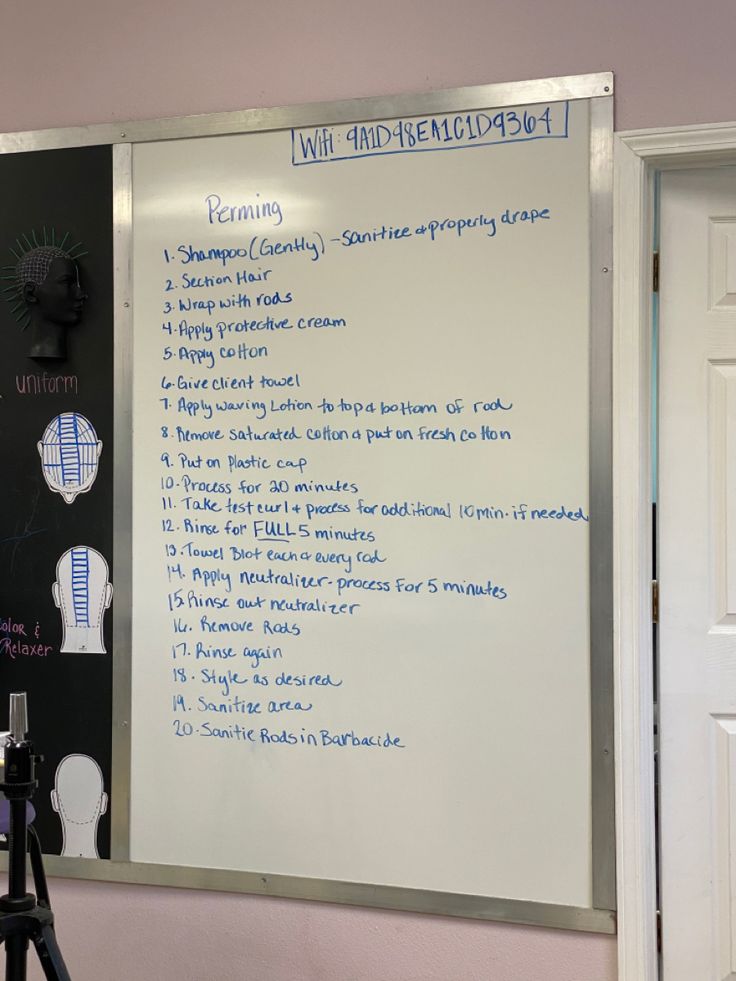 Wifi: 9A1D98EA1C1D9364
Perming
1. Shampoo (Gently) - Sanitize & properly drape
2. Section Hair
3. Wrap with rods
4. Apply protective cream
5. Apply cotton
6. Give client towel
7. Apply waving Lotion to top & bottom of rod
8. Remove saturated cotton & put on fresh cotton
9. Put on plastic cap
10. Process for 20 minutes
11. Take test curl & process for additional 10 min. if needed
12. Rinse for FULL 5 minutes
13. Towel Blot each & every rod
14. Apply neutralizer - process for 5 minutes
15. Rinse out neutralizer
16. Remove Rods
17. Rinse again
18. Style as desired
19. Sanitize area
20. Sanitie Rods in Barbacide
uniform
olor &
Relaxer